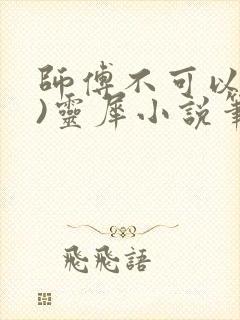 師傅不可以
)靈犀小說筆
飛飛語